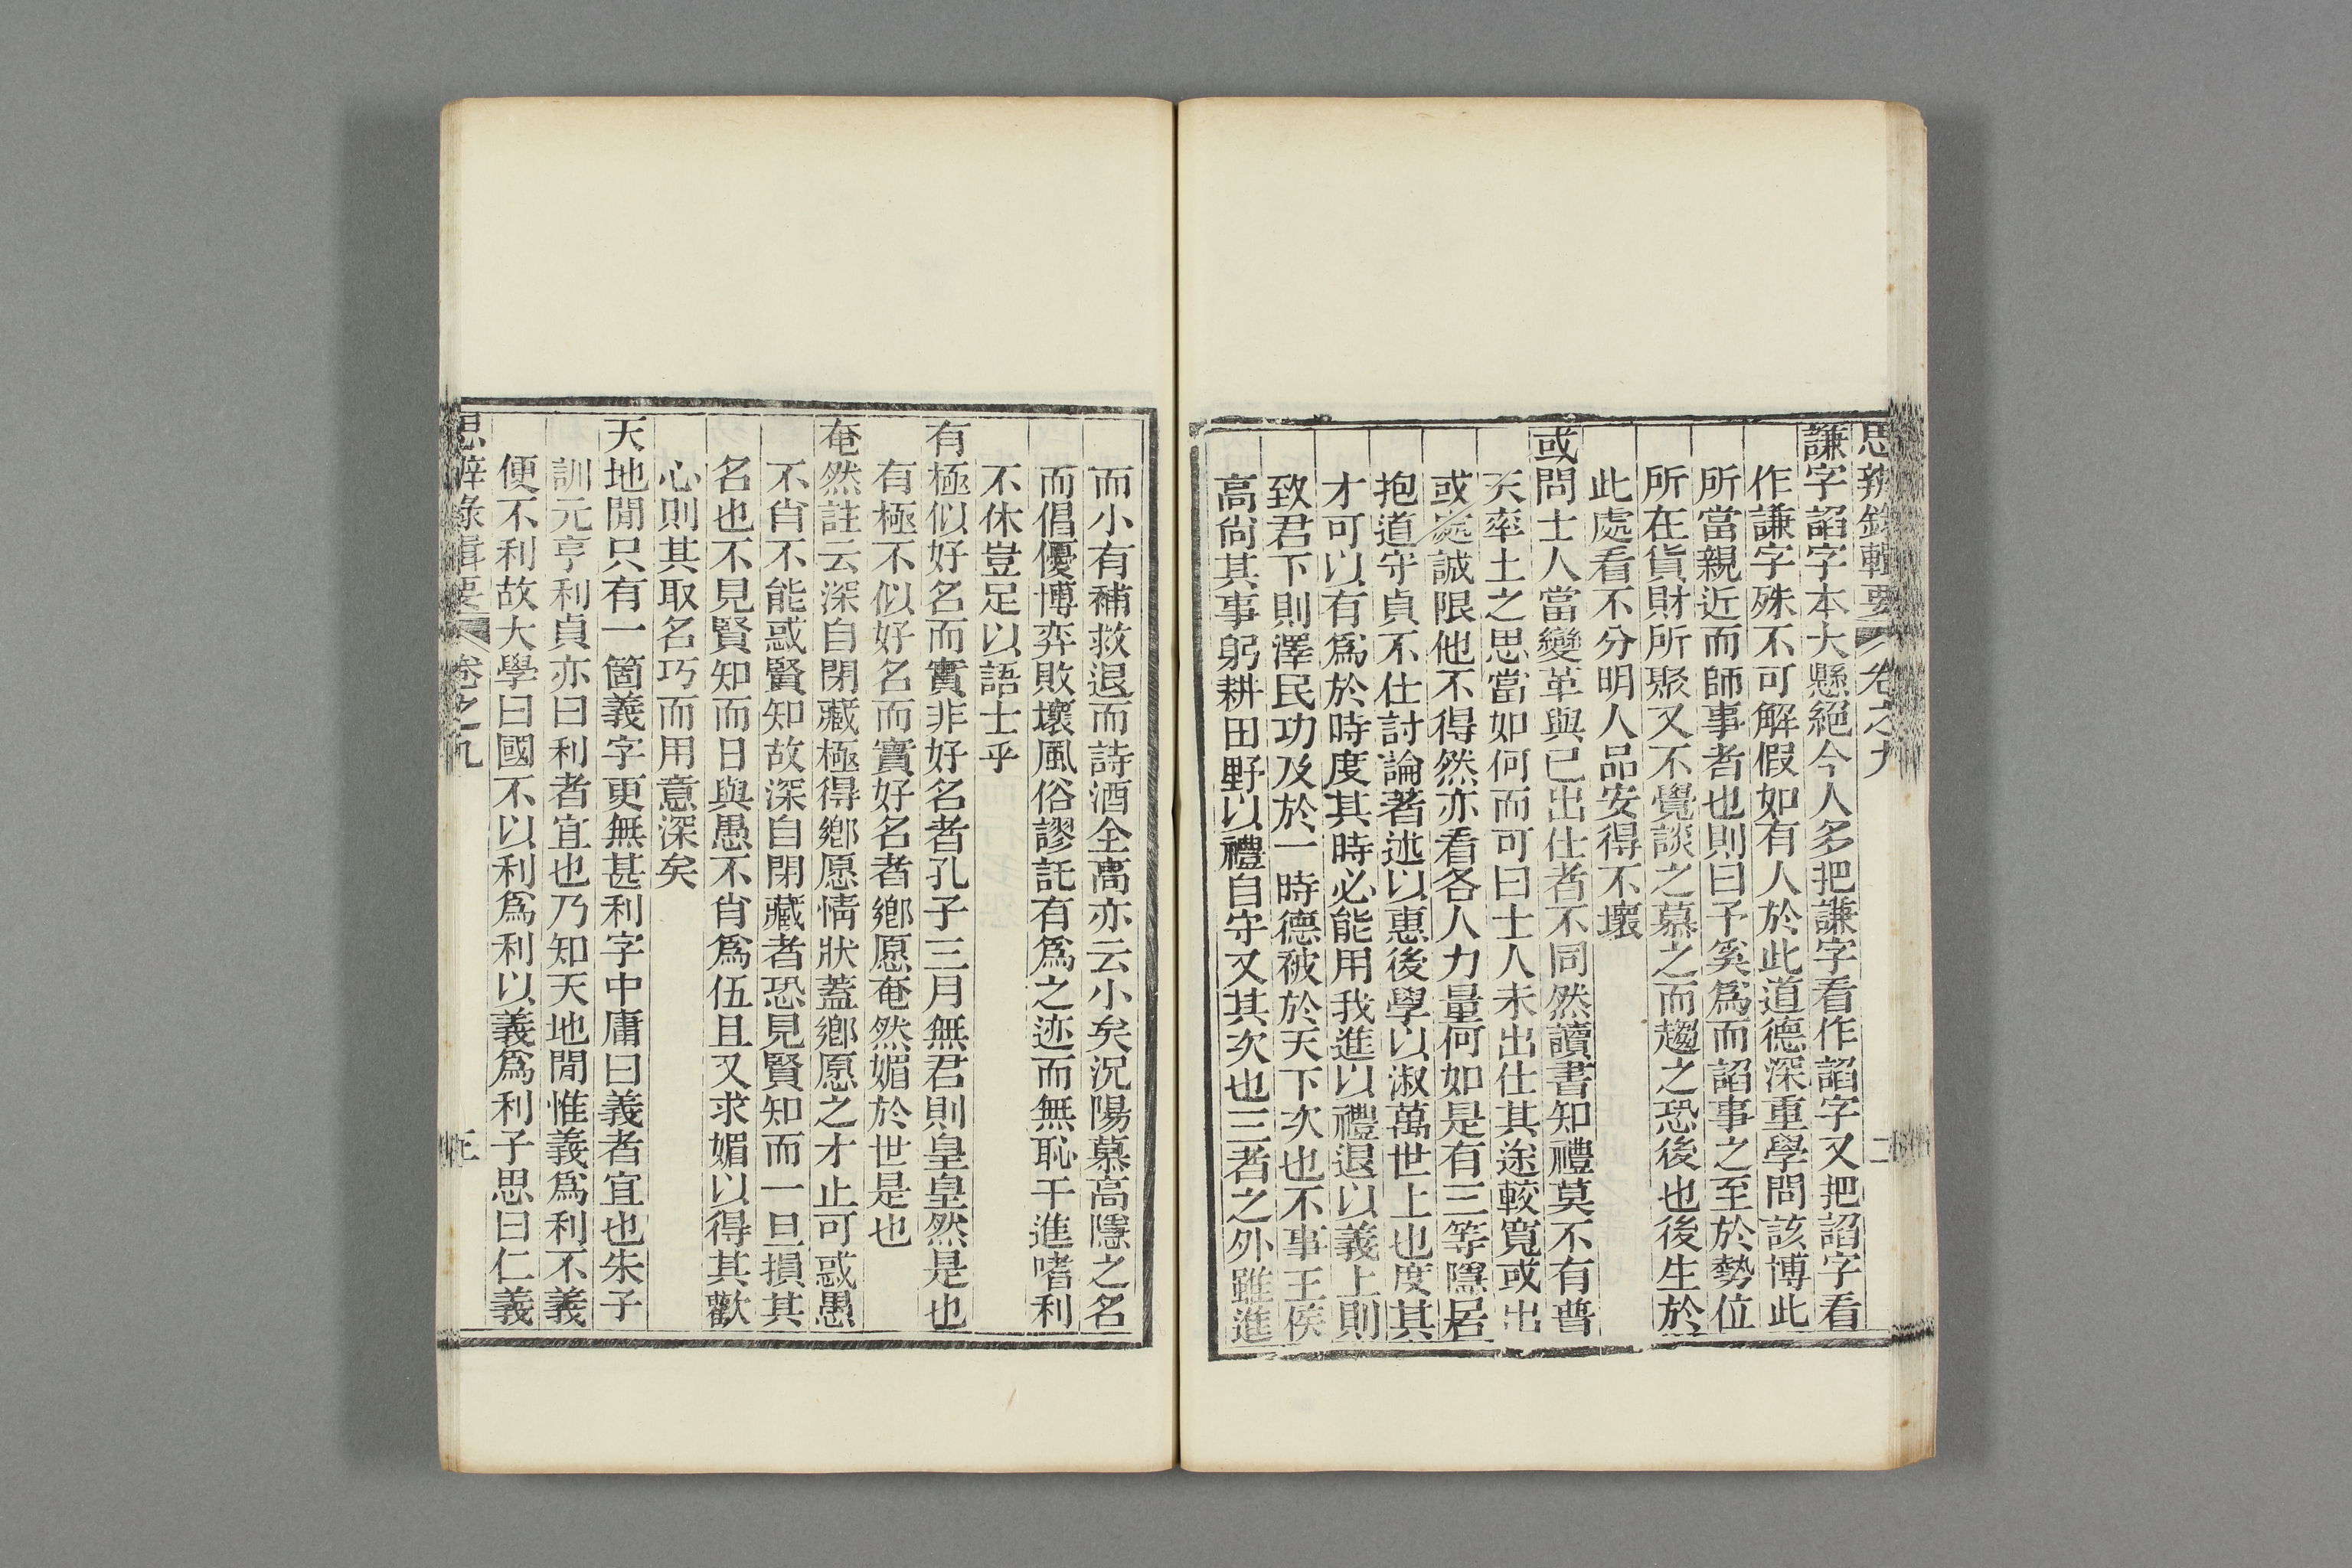 思辨錄輯要 卷之九 二
謙字諂字本大懸絕今人多把謙字看作諂字又把諂字看
作謙字殊不可解假如有人於此道德深重學問該博此
所當親近而師事者也則曰予奚爲而諂事之至於勢位
所在貨財所聚又不覺談之慕之而趨之恐後也後生於
此處看不分明人品安得不壞
或問士人當變革與已出仕者不同然讀書知禮莫不有普
天率土之思當如何而可曰士人未出仕其途較寬或出
或處誠限他不得然亦看各人力量何如是有三等隱居
抱道守貞不仕討論著述以惠後學以淑萬世上也度其
才可以有爲於時度其時必能用我進以禮退以義上則
致君下則澤民功及於一時德被於天下次也不事王侯
高尚其事躬耕田野以禮自守又其次也三者之外雖進
而小有補救退而詩酒全高亦云小矣況陽慕高隱之名
而倡優博弈敗壞風俗謬託有爲之迹而無恥干進嗜利
不休豈足以語士乎
有極似好名而實非好名者孔子三月無君則皇皇然是也
有極不似好名而實好名者鄉愿奄然媚於世是也
奄然註云深自閉藏極得鄉愿情狀蓋鄉愿之才止可惑愚
不肖不能惑賢知故深自閉藏者恐見賢知而一旦損其
名也不見賢知而日與愚不肖爲伍且又求媚以得其歡
心則其取名巧而用意深矣
天地閒只有一箇義字更無甚利字中庸曰義者宜也朱子
訓元亨利貞亦曰利者宜也乃知天地閒惟義爲利不義
便不利故大學曰國不以利爲利以義爲利子思曰仁義
思辨錄輯要 卷之九